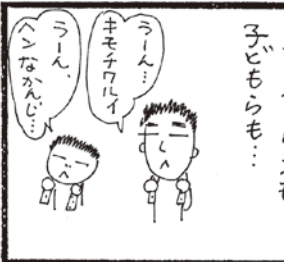 子どもらも…
うーん…
キモチワルイ
うーん、
ヘンなかんじ…